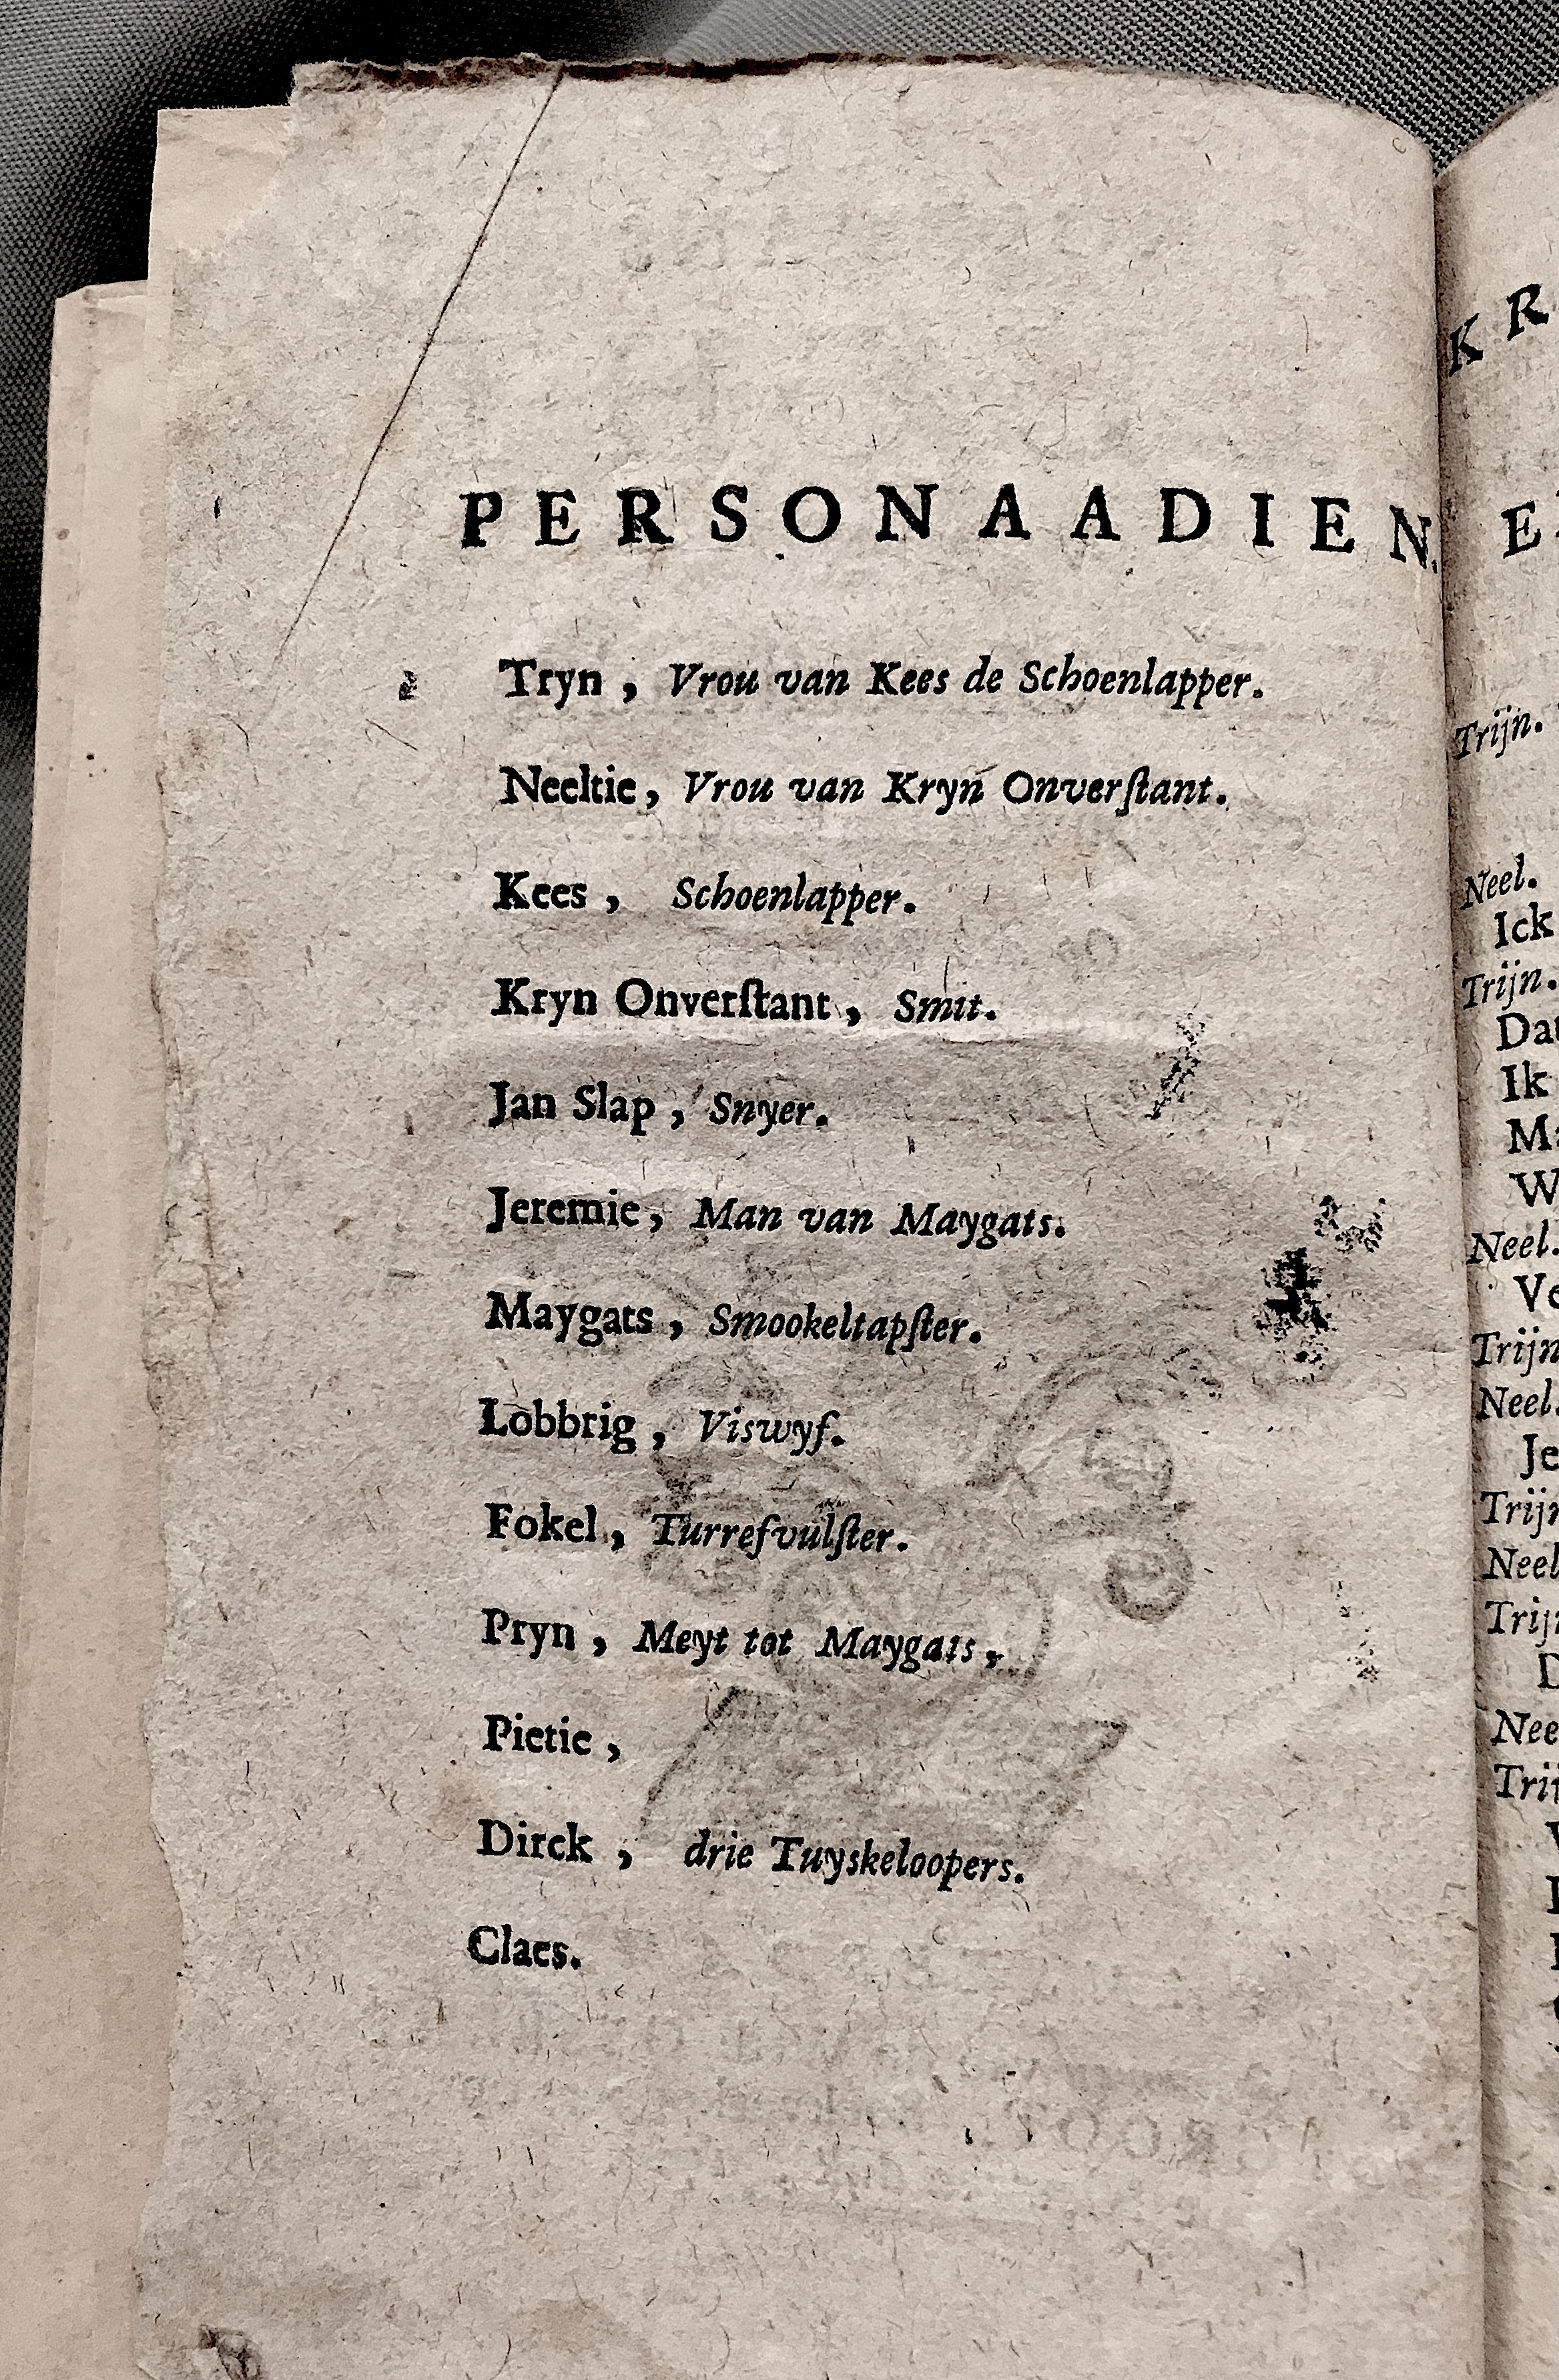 PERSONAADIEN.
Tryn, Vrou van Kees de Schoenlapper.
Neeltie, Vrou van Kryn Onverſtant.
Kees, Schoenlapper.
Kryn Onverſtant, Smit.
Jan Slap, Snyer.
Jeremie, Man van Maygats.
Maygats, Smookeltapſter.
Lobbrig, Viswyf.
Fokel, Turrefvulſter.
Pryn, Meyt tot Maygats,
Pietie,
Dirck, drie Tuyskeloopers.
Claes.
KR
Trijn.
Neel.
Ick
Trijn.
Ik
Neel.
Trijn
Neel.
Je
Neel